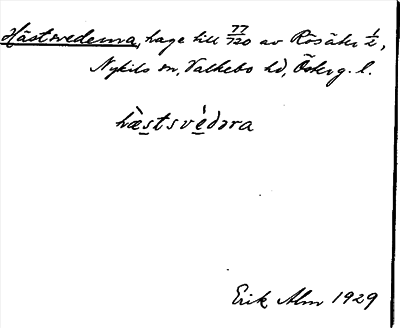 Hästsvederna, hage till 77/720 av Rösäter 1/2,
Nykils sn, Valkebo hd, Österg. l.
hæ̀stsvèdəra
Erik Alm 1929